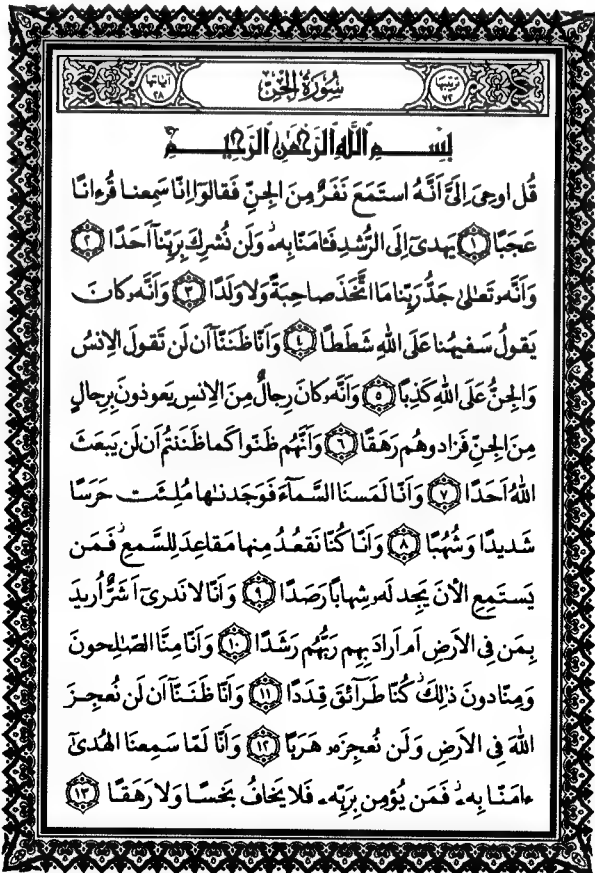 ترتيبها ٧٢ سُورَةُ الجِنِّ آياتها ٢٨
بِسْمِ اللَّهِ الرَّحْمَٰنِ الرَّحِيمِ
قُل اوحِیَ اِلَیَّ اَنَّهُ استَمَعَ نَفَرٌ مِنَ الجِنِّ فَقالوا اِنّا سَمِعنا قُرءانًا
عَجَبًا ﴿١﴾ يَهدی اِلَی الرُّشدِ فَـٔامَنّا بِه وَلَن نُشرِكَ بِرَبِّنا اَحَدًا ﴿٢﴾
وَاَنَّه تَعالىٰ جَدُّ رَبِّنا مَا اتَّخَذَ صاحِبَةً وَلا وَلَدًا ﴿٣﴾ وَاَنَّه كانَ
يَقولُ سَفيهُنا عَلَی اللهِ شَطَطًا ﴿٤﴾ وَاَنّا ظَنَنّا اَن لَن تَقولَ الاِنسُ
وَالجِنُّ عَلَی اللهِ كَذِبًا ﴿٥﴾ وَاَنَّه كانَ رِجالٌ مِنَ الاِنسِ يَعوذونَ بِرِجالٍ
مِنَ الجِنِّ فَزادوهُم رَهَقًا ﴿٦﴾ وَاَنَّهُم ظَنّوا كَما ظَنَنتُم اَن لَن يَبعَثَ
اللهُ اَحَدًا ﴿٧﴾ وَاَنّا لَمَسنَا السَّماءَ فَوَجَدنٰها مُلِئَت حَرَسًا
شَديدًا وَشُهُبًا ﴿٨﴾ وَاَنّا كُنّا نَقعُدُ مِنها مَقاعِدَ لِلسَّمعِ فَمَن
يَستَمِعِ الاٰنَ يَجِد لَه شِهابًا رَصَدًا ﴿٩﴾ وَاَنّا لا نَدری اَشَرٌّ اُريدَ
بِمَن فِی الاَرضِ اَم اَرادَ بِهِم رَبُّهُم رَشَدًا ﴿١٠﴾ وَاَنّا مِنَّا الصّٰلِحونَ
وَمِنّا دونَ ذٰلِكَ كُنّا طَرائِقَ قِدَدًا ﴿١١﴾ وَاَنّا ظَنَنّا اَن لَن نُعجِزَ
اللهَ فِی الاَرضِ وَلَن نُعجِزَه هَرَبًا ﴿١٢﴾ وَاَنّا لَمّا سَمِعنَا الهُدیٰ
ءامَنّا بِه فَمَن يُؤمِن بِرَبِّه فَلا يَخافُ بَخسًا وَلا رَهَقًا ﴿١٣﴾